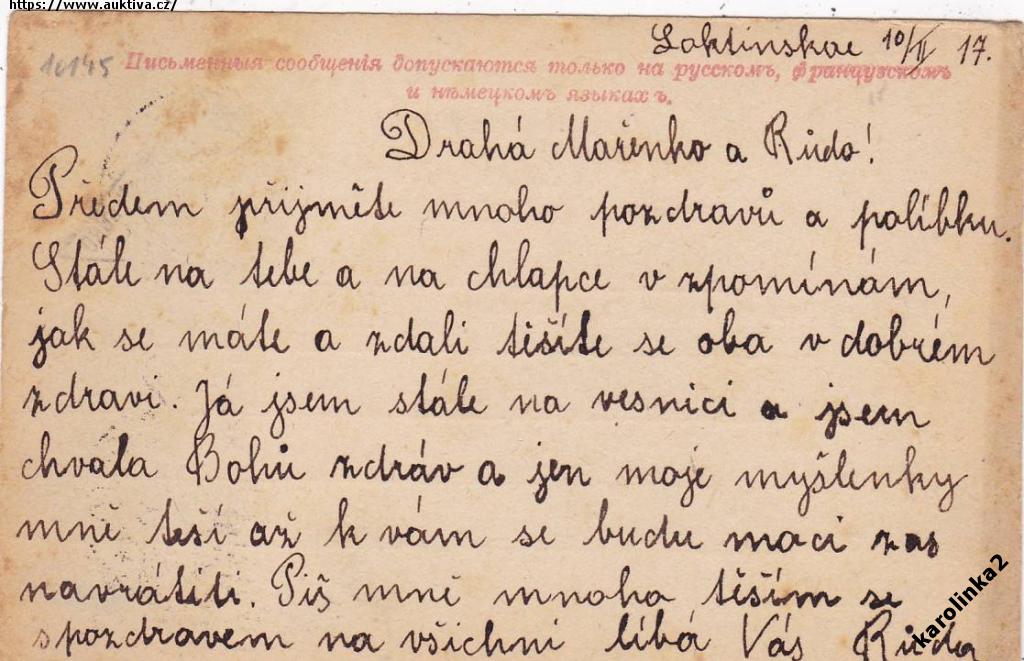 https://www.auktiva.cz/
Loktinskoe 10/II 17.
10145
Письменныя сообщенія допускаются только на русскомъ, французскомъ
и нѣмецкомъ языкахъ.
Drahá Mařenko a Rudo!
Předem přijměte mnoho pozdravů a políbku.
Stále na tebe a na chlapce v zpomínám,
jak se máte a zdali těšíte se oba v dobrém
zdravi. Já jsem stále na vesnici a jsem
chvala Bohů zdráv a jen moje myšlenky
mně teší až k vám se budu moci zas
navrátiti. Piš mně mnoho, těším se
s pozdravem na všichni líbá Vás Ruda
karolinka2